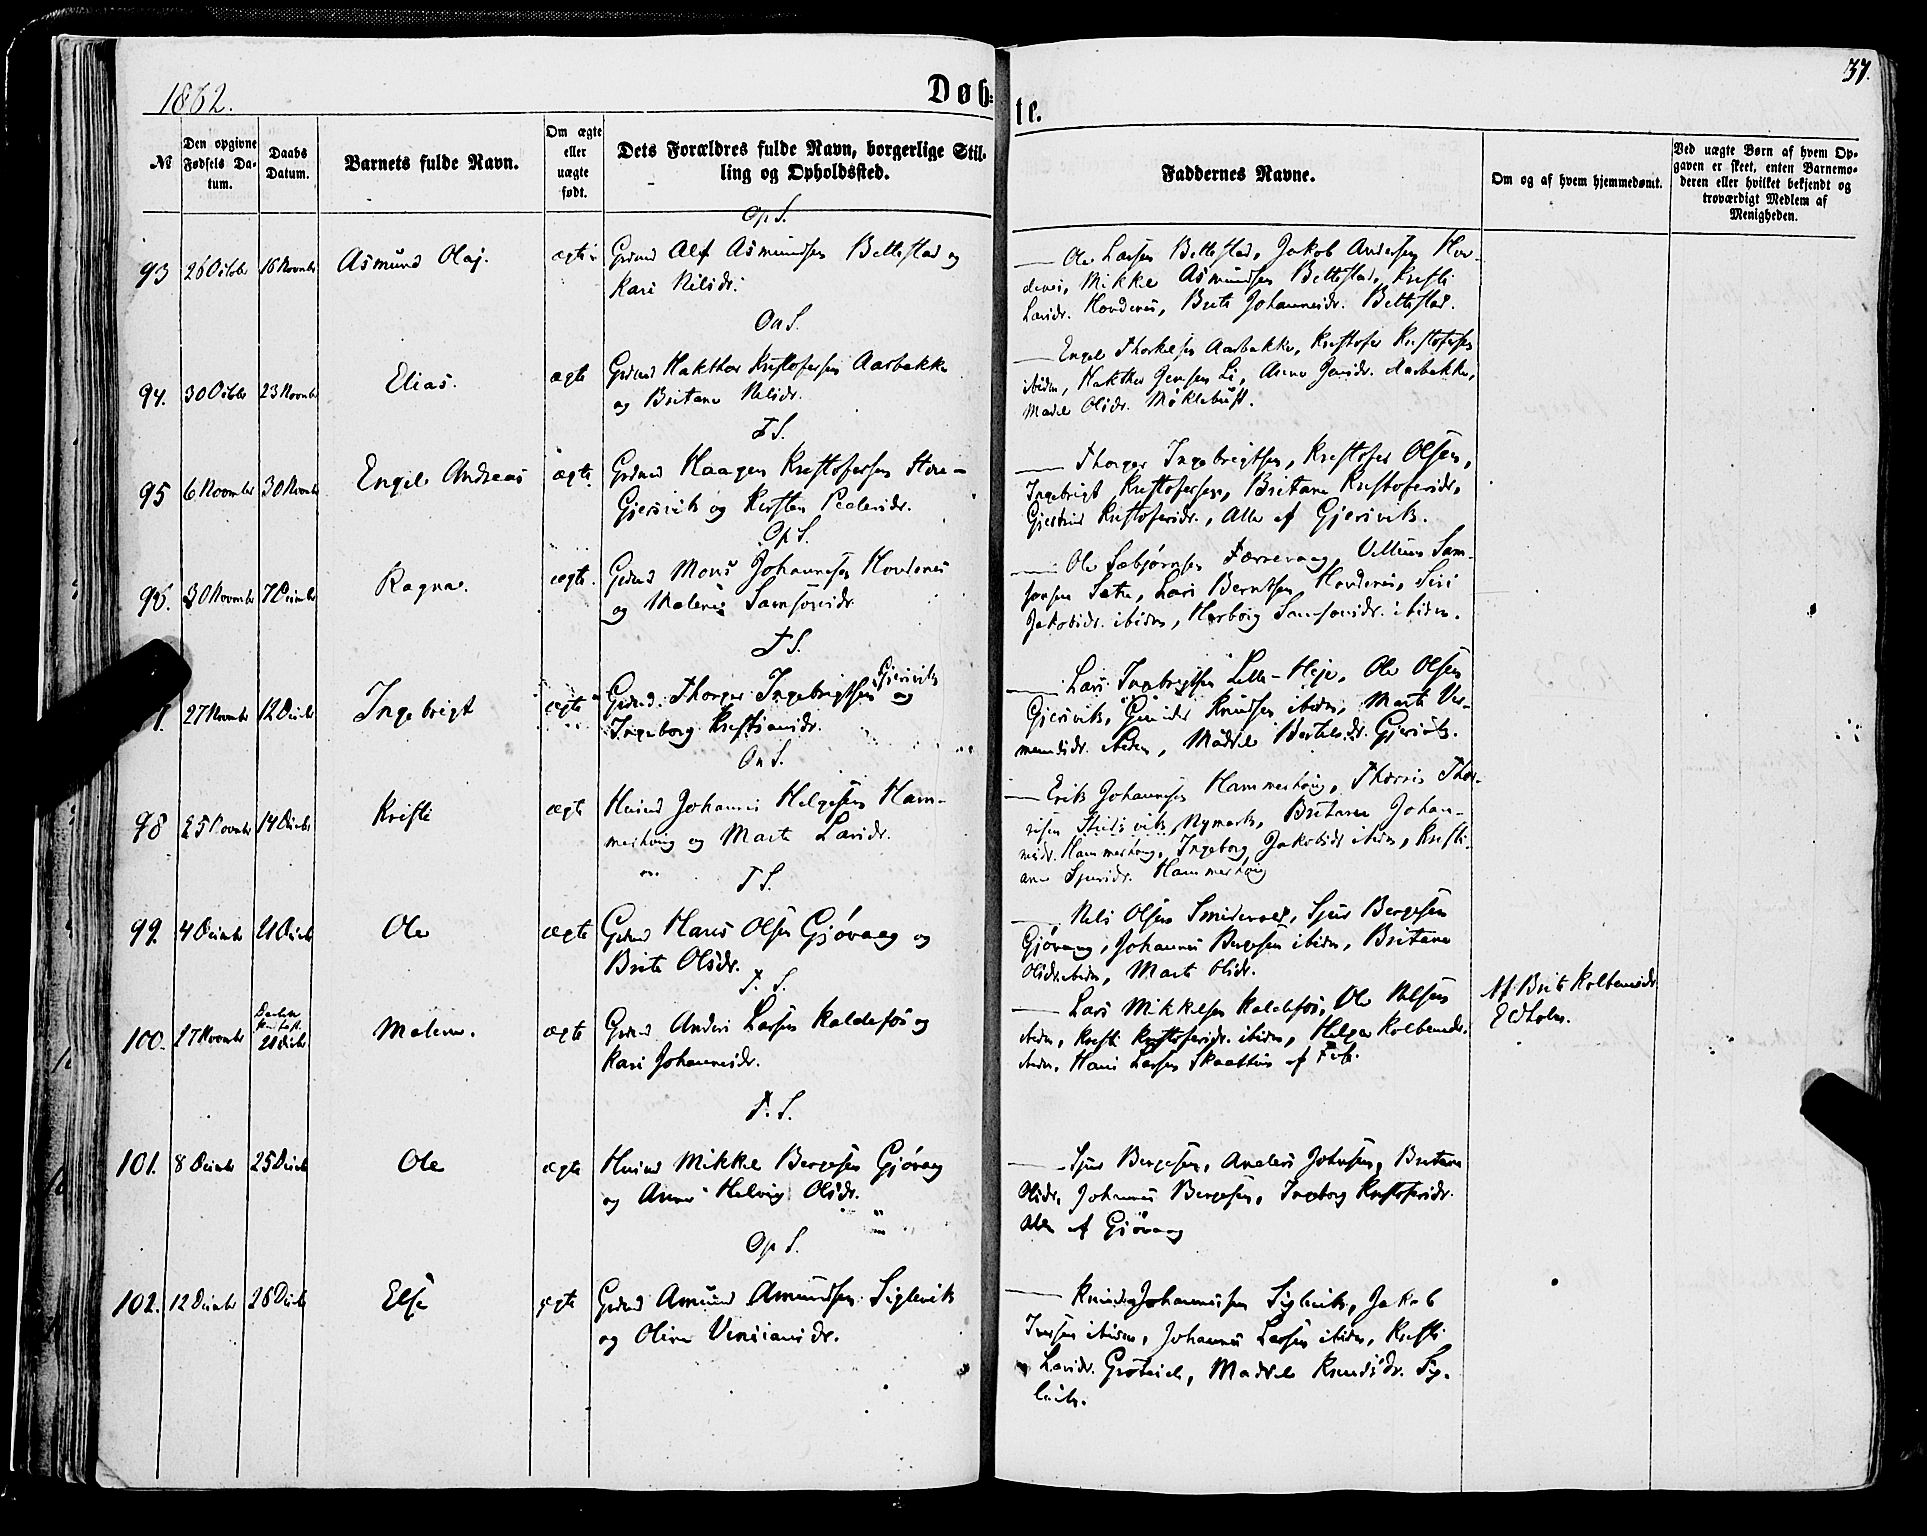 1862.
Døb-
te.
37.
№
Den opgivne Fødsels Da-tum.
Daabs Datum.
Barnets fulde Navn.
Om ægte eller uægte født.
Dets Forældres fulde Navn, borgerlige Stil-
ling og Opholdssted.
Faddernes Navne.
Om og af hvem hjemmedøbt.
Ved uægte Børn af hvem Op-
gaven er skeet, enten Barnemo-
deren eller hvilket bekjendt og
troværdigt Medlem af
Menigheden.
Op S.
93 26 Octbr 16 Novmbr Asmund Olaj. ægte Grdmd Alf Asmundsen Bettestad og
Kari Nilsdr.
Ole Larsen Bettestad, Jakob Andersen Hov-
denes, Mikkel Asmundsen Bettestad, Kristi
Larsdr. Hovdenes, Brite Johannesdr. Bettestad.
On S.
94. 30 Octbr 23 Novmbr Elias. ægte Grdmd Hakthor Kristofersen Aarbakke
og Britane Nilsdr.
Engel Thorkelsen Aarbakke, Kristofer Kristofersen
ibidm, Hakthor Jensen Li, Anne Jensdr. Aarbakke,
Madel Olsdr. Möklebust.
F S.
95 6 Novmbr 30 Novmbr Engel Andreas ægte Grdmd Haagen Kristofersen Store-
Gjersvik og Kirsten Pedersdr.
Thorger Ingebrigtsen, Kristofer Olsen,
Ingebrigt Kristofersen, Britane Kristofersdr,
Gjertrud Kristofersdr., Alle af Gjersvik.
Op S.
96. 30 Novmbr 7 Decmbr Ragna. ægte Grdmd Mons Johannesen Hovdenes
og Malene Samsonsdr.
Ole Sæbjørnsen Færrevaag, Villum Sam-
sonsen Sætre, Lars Berntsen Hovdenes, Siri
Jakobsdr. ibidm, Herborg Samsonsdr. ibidm.
F S.
27 Novmbr 12 Decbr Ingebrigt ægte Grdmd. Thorger Ingebrigtsen Gjersvik og
Ingeborg Kristiansdr.
Lars Ingebrigtsen Lille-Heje, Ole Olsen
Gjersvik, Knudsen ibidm, Marte
ibidm, Madele Bertelsdr. Gjersvik.
On S.
98 25 Novmbr 14 Decbr Kristi ægte Husmd Johannes Helgesen Ham-
mershoug og Marte Larsdr.
Erik Johannesen Hammershoug, Thorris Thor-
risen Nymark, Britane Johan-
nesdr. Hammershoug, Ingeborg Jakobsdr ibidm, Kristi-
ane Sjursdr. Hammershoug
F S.
99. 4 Decmbr 21 Decbr Ole ægte Grdmd Hans Olsen Gjøvaag og
Brite Olsdr.
Nils Olsen Smidevold, Sjur Bergesen
Gjøvaag, Johannes Bergesen ibidm, Britane
Olsdr. ibidm, Marte Olsdr.
F. S.
100. 17 Novmbr 21 Decbr Malene. ægte Grdmd Anders Larsen Kaldefos og
Kari Johannesdr.
Lars Mikkelsen Kaldefos, Ole Nilsen
ibidm, Kristi Kristofersdr. ibidm, Helga Kolbensdr.
ibidm, Hans Larsen Skaathun af
Af Brite Kolbensdr
Edholm.
F. S.
101. 8 Decmbr 25 Decbr Ole ægte Husmd Mikkel Bergesen Gjøvaag
og Anne Helvig Olsdr.
Sjur Bergesen, Anders Johnsen, Britane
Olsdr, Johannes Bergesen, Ingeborg Kristofersdr.
Alle af Gjøvaag
Op S.
102. 12 Decmbr 26 Decbr Else ægte Grdmd Amund Amundsen Siglevik
og Oline Vinsiansdr.
Knud Johannessen Siglevik, Jakob
Iversen ibidm, Johannes Larsen ibidm, Kristi
Larsdr. Groteide, Madele Knudsdr. Sig-
levik.